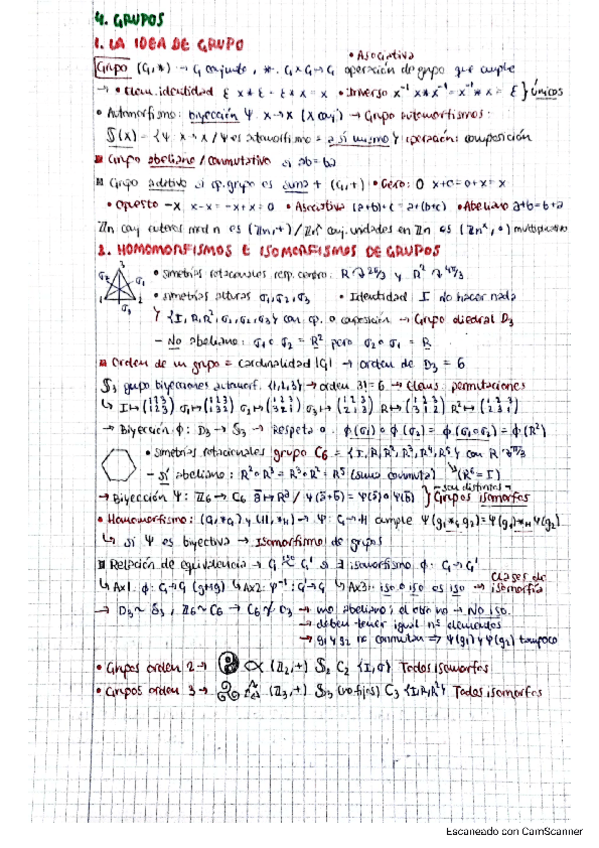 4. GRUPOS
1. LA IDEA DE GRUPO
• Asociativa
Grupo (G,*) → G conjunto, *: G×G→G operación de grupo que cumple
→ • Elem. identidad ε x*ε = ε*x = x • Inverso x⁻¹ x*x⁻¹ = x⁻¹*x = ε } únicos
• Automorfismo: biyección Ψ: x→x (X conj) → Grupo automorfismos:
S(X) = {Ψ: x→x / Ψ es automorfismo = a sí mismo} operación: composición
Grupo abeliano / conmutativo si ab=ba
Grupo aditivo si op. grupo es suma + (G,+) • Cero: 0 x+0=0+x=x
• Opuesto -x x-x=-x+x=0 • Asociativa (a+b)+c=a+(b+c) • Abeliano a+b=b+a
Zn conj enteros mod n es (Zn,+) / Znˣ conj. unidades en Zn es (Znˣ, •) multiplicativo
2. HOMOMORFISMOS E ISOMORFISMOS DE GRUPOS
• simetrías rotacionales resp. centro: R ↷ 2π/3 y R² ↷ 4π/3
• simetrías alturas σ₁,σ₂,σ₃ • Identidad I no hacer nada
{I,R,R²,σ₁,σ₂,σ₃} con op. o composición → Grupo diedral D₃
- No abeliano: σ₁∘σ₂ = R² pero σ₂∘σ₁ = R
Orden de un grupo = cardinalidad |G| → orden de D₃ = 6
S₃ grupo biyecciones automorf. {1,2,3} → orden 3! = 6 → Elems. permutaciones
↳ I↦(1 2 3 / 1 2 3) σ₁↦(1 2 3 / 1 3 2) σ₂↦(1 2 3 / 3 2 1) σ₃↦(1 2 3 / 2 1 3) R↦(1 2 3 / 3 1 2) R²↦(1 2 3 / 2 3 1)
→ Biyección ϕ: D₃ → S₃ → Respeta o. ϕ(σ₁)∘ϕ(σ₂) = ϕ(σ₁∘σ₂) = ϕ(R²)
• simetrías rotacionales grupo C₆ = {I,R,R²,R³,R⁴,R⁵} con R ↷ π/3
- sí abeliano: R²∘R³ = R³∘R² = R⁵ (suma conmuta) (R⁶=I)
- son distintos -
→ Biyección Ψ: Z₆ → C₆ ā↦Rᵃ / Ψ(ā+b̄) = Ψ(ā)∘Ψ(b̄) } Grupos isomorfos
• Homomorfismo: (G,*G) y (H,*H) → Ψ: G→H cumple Ψ(g₁*G g₂)=Ψ(g₁)*H Ψ(g₂)
↳ si Ψ es biyectiva → Isomorfismo de grupos
Relación de equivalencia → G ≅ G' si ∃ isomorfismo ϕ: G→G'
↳ Ax1: ϕ: G→G (g↦g) ↳ Ax2: Ψ⁻¹: G'→G ↳ Ax3: iso∘iso es iso → clases de isomorfía
→ D₃~S₃, Z₆~C₆ → C₆≁D₃ → uno abeliano y el otro no → No iso.
→ deben tener igual nº elementos
→ g₁ y g₂ no conmutan ⇒ Ψ(g₁) y Ψ(g₂) tampoco
• Grupos orden 2 → (Z₂,+) S₂ C₂ {I,σ} Todos isomorfos
• Grupos orden 3 → (Z₃,+) S₃ C₃ {I,R,R²} Todos isomorfos
Escaneado con CamScanner